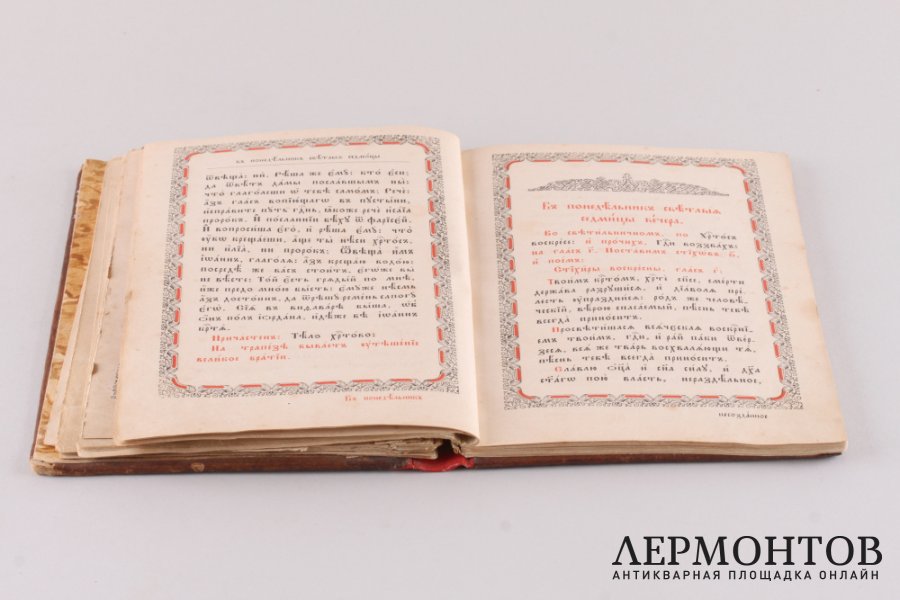 въ понедѣльникъ свѣтлыѧ седмицы
ѿвѣща: ни́. Рѣ́ша же є҆мꙋ̀: кто̀ є҆сѝ;
да ѿвѣ́тъ да́мы посла́вшымъ ны̀:
что̀ глаго́леши ѡ҆ тебѣ̀ само́мъ; Речѐ:
а҆́зъ гла́съ вопїю́щагѡ въ пꙋсты́ни,
и҆спра́вите пꙋ́ть гд҇ень, ꙗ҆́коже речѐ и҆са́їа
проро́къ. И҆ по́сланнїи бѣ́хꙋ ѿ фарїсє́й.
И҆ вопроси́ша є҆го̀, и҆ рѣ́ша є҆мꙋ̀: что̀
ᲂу҆̀бо креща́еши, а҆́ще ты̀ нѣ́си хрⷭ҇то́съ,
ни и҆лїа̀, ни проро́къ; Ѿвѣща̀ и҆̀мъ
і҆ѡа́ннъ, глаго́лѧ: а҆́зъ креща́ю водо́ю:
посредѣ́ же ва́съ стои́тъ, є҆гѡ́же вы̀
не вѣ́сте: То́й є҆́сть грѧды́й по мнѣ̀,
и҆́же предо мно́ю бы́сть: є҆мꙋ́же нѣ́смь
а҆́зъ досто́инъ, да ѿрѣшꙋ̀ реме́нь сапогꙋ̀
є҆гѡ̀. Сїѧ̑ въ виѳава́рѣ бы́ша, ѡ҆б̾
ѡ҆́нъ по́лъ і҆ѻрда́на, и҆дѣ́же бѣ̀ і҆ѡа́ннъ
крⷭ҇тѧ̀.
Прича́стенъ: Тѣ́ло хрⷭ҇то́во:
На трапе́зѣ быва́етъ ᲂу҆тѣше́нїе
вели́кое бра́тїи.
Въ понедѣ́льникъ
Въ понедѣ́льникъ свѣ́тлыѧ
седми́цы ве́чера.
Во свѣти́льничномъ, по хрⷭ҇то́съ
воскре́се: и҆ про́чихъ. Гдⷭ҇и воззва́хъ:
на гла́съ г҃. Поста́вимъ стїхѡ́въ, ѕ҃,
и҆ пое́мъ:
Стїхи̑ры воскрⷭ҇ны, гла́съ г҃.
Твои́мъ крⷭ҇то́мъ, хрⷭ҇тѐ сп҃се, сме́рти
держа́ва разрꙋши́сѧ, и҆ дїа́волѧ пре́-
лесть ᲂу҆праздни́сѧ: ро́дъ же человѣ́-
ческїй, вѣ́рою спаса́емый, пѣ́снь тебѣ̀
всегда̀ прино́ситъ.
Просвѣти́шасѧ всѧ́чєскаѧ воскрⷭ҇нї-
емъ твои́мъ, гдⷭ҇и, и҆ ра́й па́ки ѿве́р-
зесѧ, всѧ́ же тва́рь восхвалѧ́ющи тѧ̀,
пѣ́снь тебѣ̀ всегда̀ прино́ситъ.
Сла́влю ѻ҆ц҃а̀ и҆ сн҃а си́лꙋ, и҆ дх҃а
ст҃а́гѡ пою̀ вла́сть, нераздѣ́льное,
несозда́нное
ЛЕРМОНТОВ
АНТИКВАРНАЯ ПЛОЩАДКА ОНЛАЙН